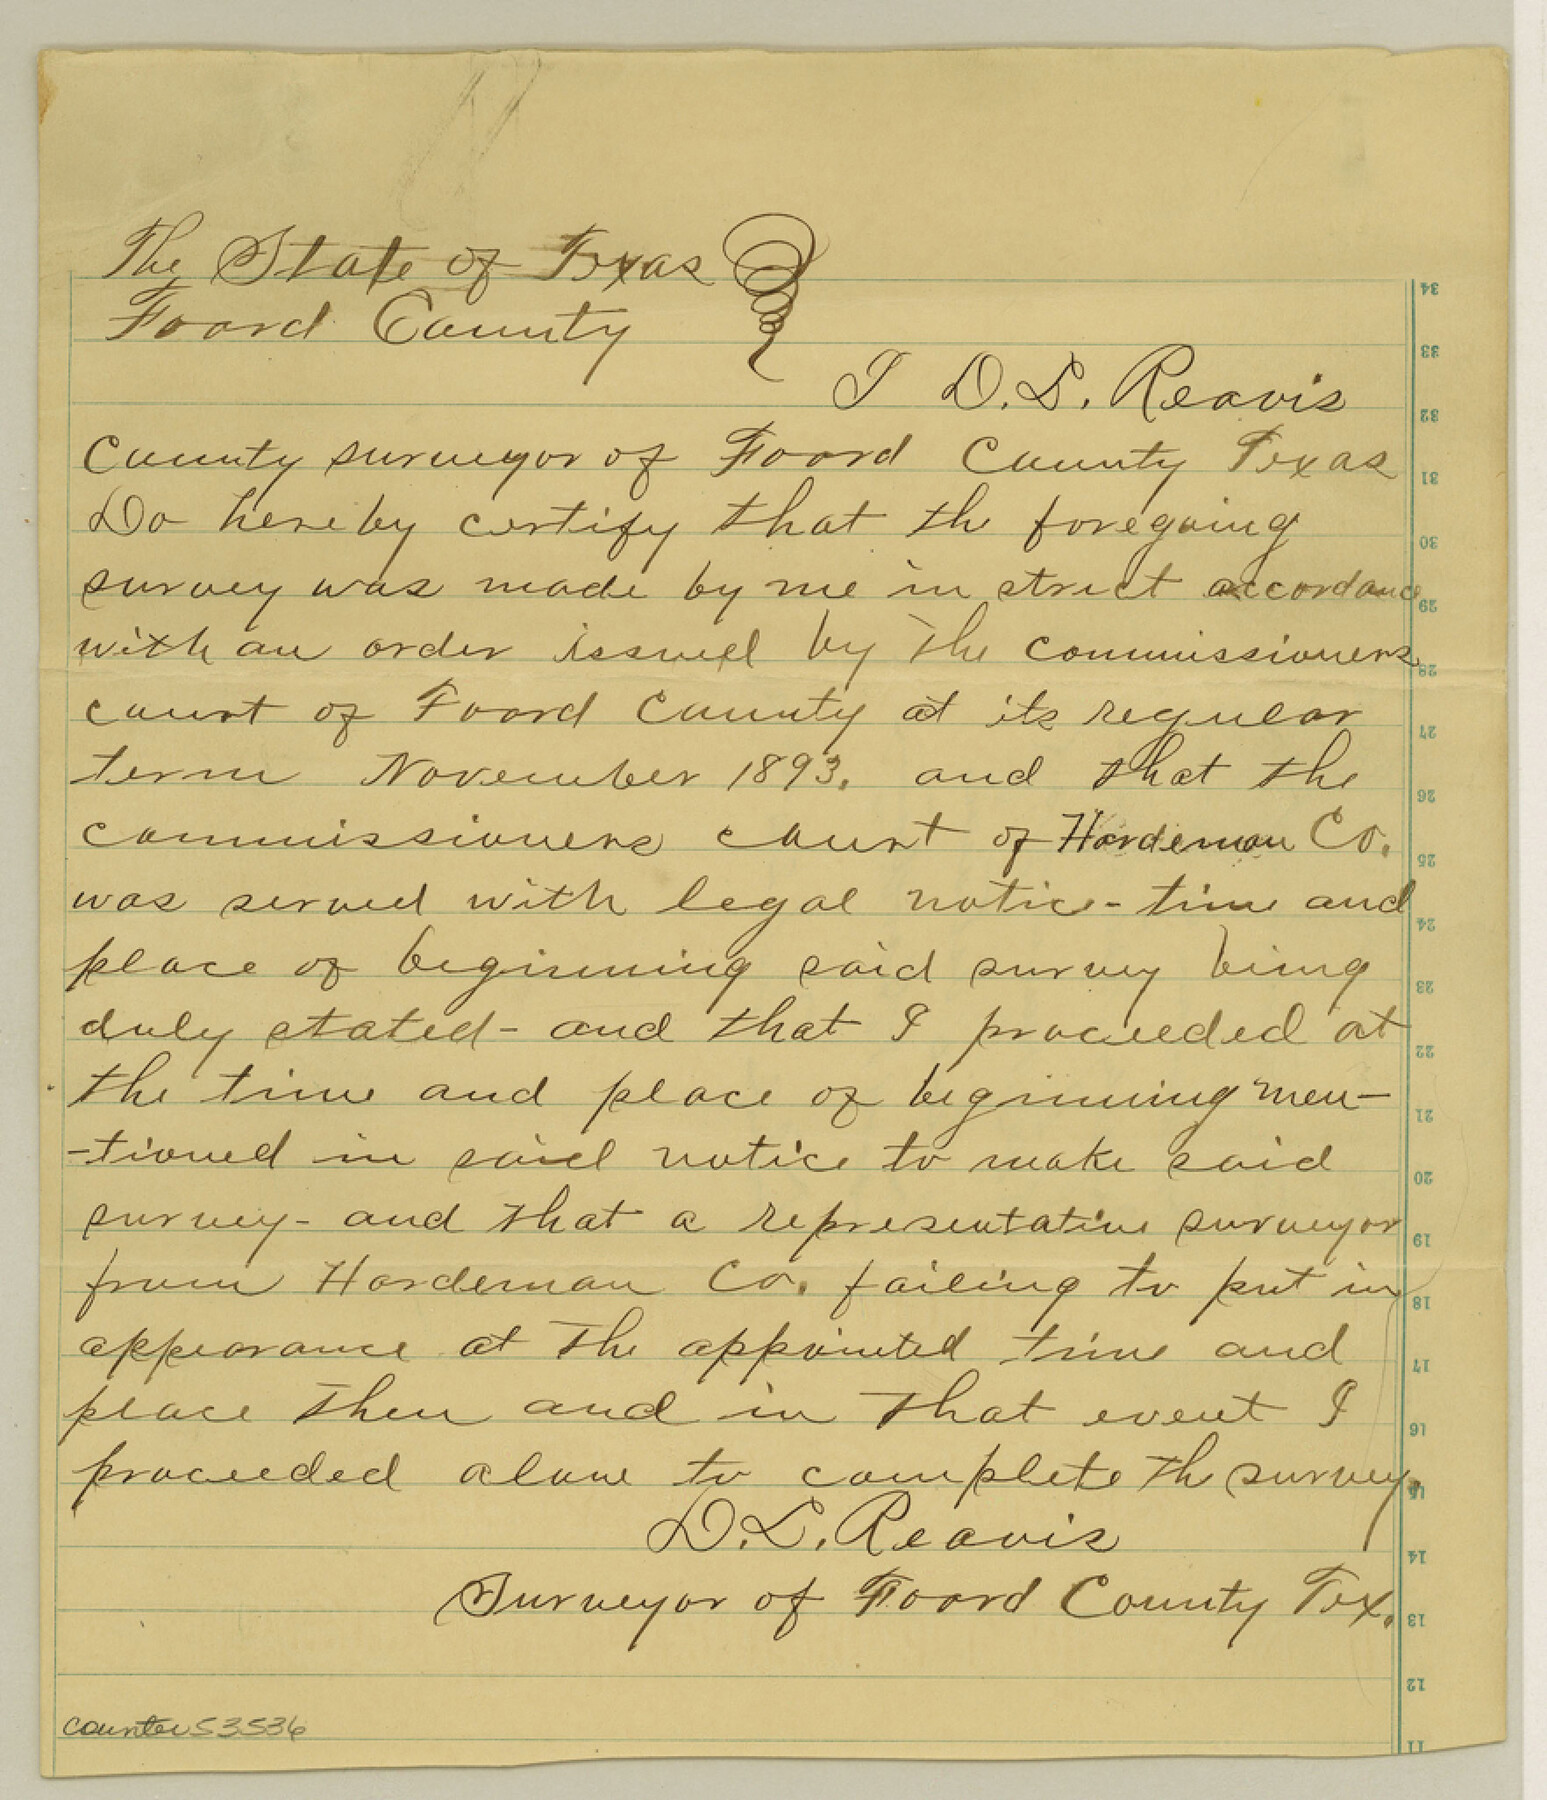 The State of Texas
Foard County
I D. L. Reavis
County surveyor of Foard County Texas
Do hereby certify that th foregoing
survey was made by me in strict accordance
with an order issued by the commissioners
court of Foard County at its regular
term November 1893. and that the
commissioners court of Hardeman Co.
was served with legal notice - time and
place of beginning said survey being
duly stated - and that I proceeded at
the time and place of beginning men-
-tioned in said notice to make said
survey - and that a representative surveyor
from Hardeman Co. failing to put in
appearance at the appointed time and
place then and in that event I
proceeded alone to complete th survey.
D. L. Reavis
Surveyor of Foard County Tex.
counter 53536
34
33
32
31
30
29
28
27
26
25
24
23
22
21
20
19
18
17
16
15
14
13
12
11